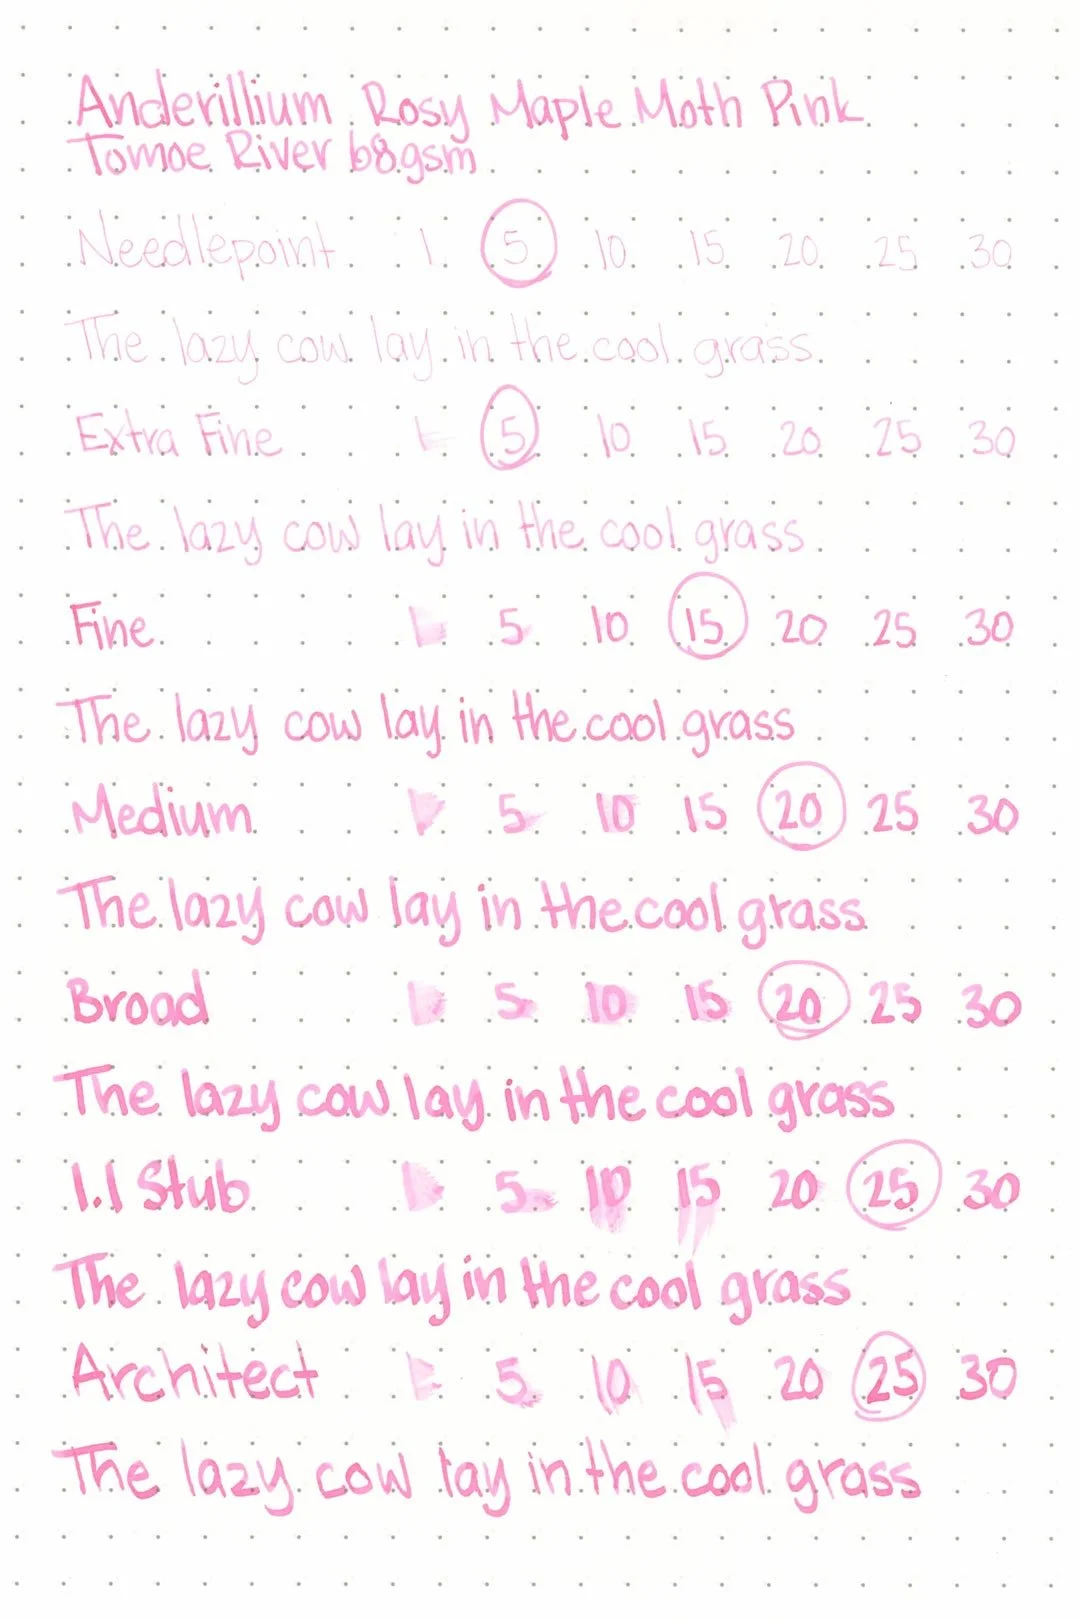 Anderillium Rosy Maple Moth Pink
Tomoe River 68gsm
Needlepoint 1 5 10 15 20 25 30
The lazy cow lay in the cool grass
Extra Fine 1 5 10 15 20 25 30
The lazy cow lay in the cool grass
Fine 1 5 10 15 20 25 30
The lazy cow lay in the cool grass
Medium 1 5 10 15 20 25 30
The lazy cow lay in the cool grass
Broad 1 5 10 15 20 25 30
The lazy cow lay in the cool grass
1.1 Stub 1 5 10 15 20 25 30
The lazy cow lay in the cool grass
Architect 1 5 10 15 20 25 30
The lazy cow lay in the cool grass